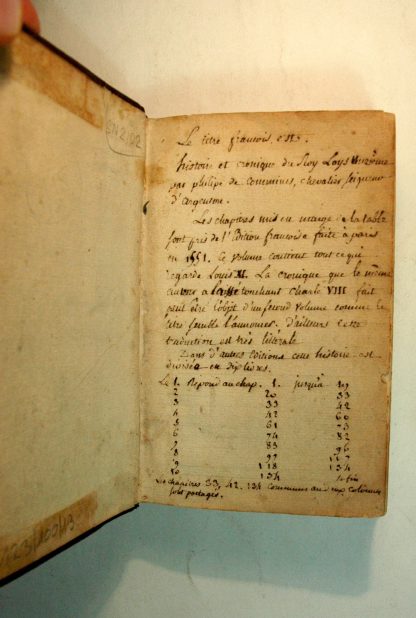 EN 2192
Le titre francois, est.
histoire et cronique du Roy Loys unzième
par philipe de Commines, chevalier seigneur
d'argenton.
Les chapitres mis en marge de la table
sont pris de l'Edition francoise faite à paris
en 1551. Ce volume contient tout ce qui
regarde Louis XI. La cronique que le même
auteur a laissé touchant Charle VIII fait
peut être l'objet d'un second volume comme le
titre semble l'annoncer. D'ailleurs cette
traduction est très littérale
Dans d'autres Editions cette histoire est
divisée en dix livres.
Le 1. Repond au chap. 1. jusqu'à 19
2 20 33
3 33 42
4 42 60
5 61 73
6 74 82
7 83 96
8 97 117
9 118 134
10 134 la fin
Les chapitres 33, 42. 134 communs aux deux colonnes
sont partagés.